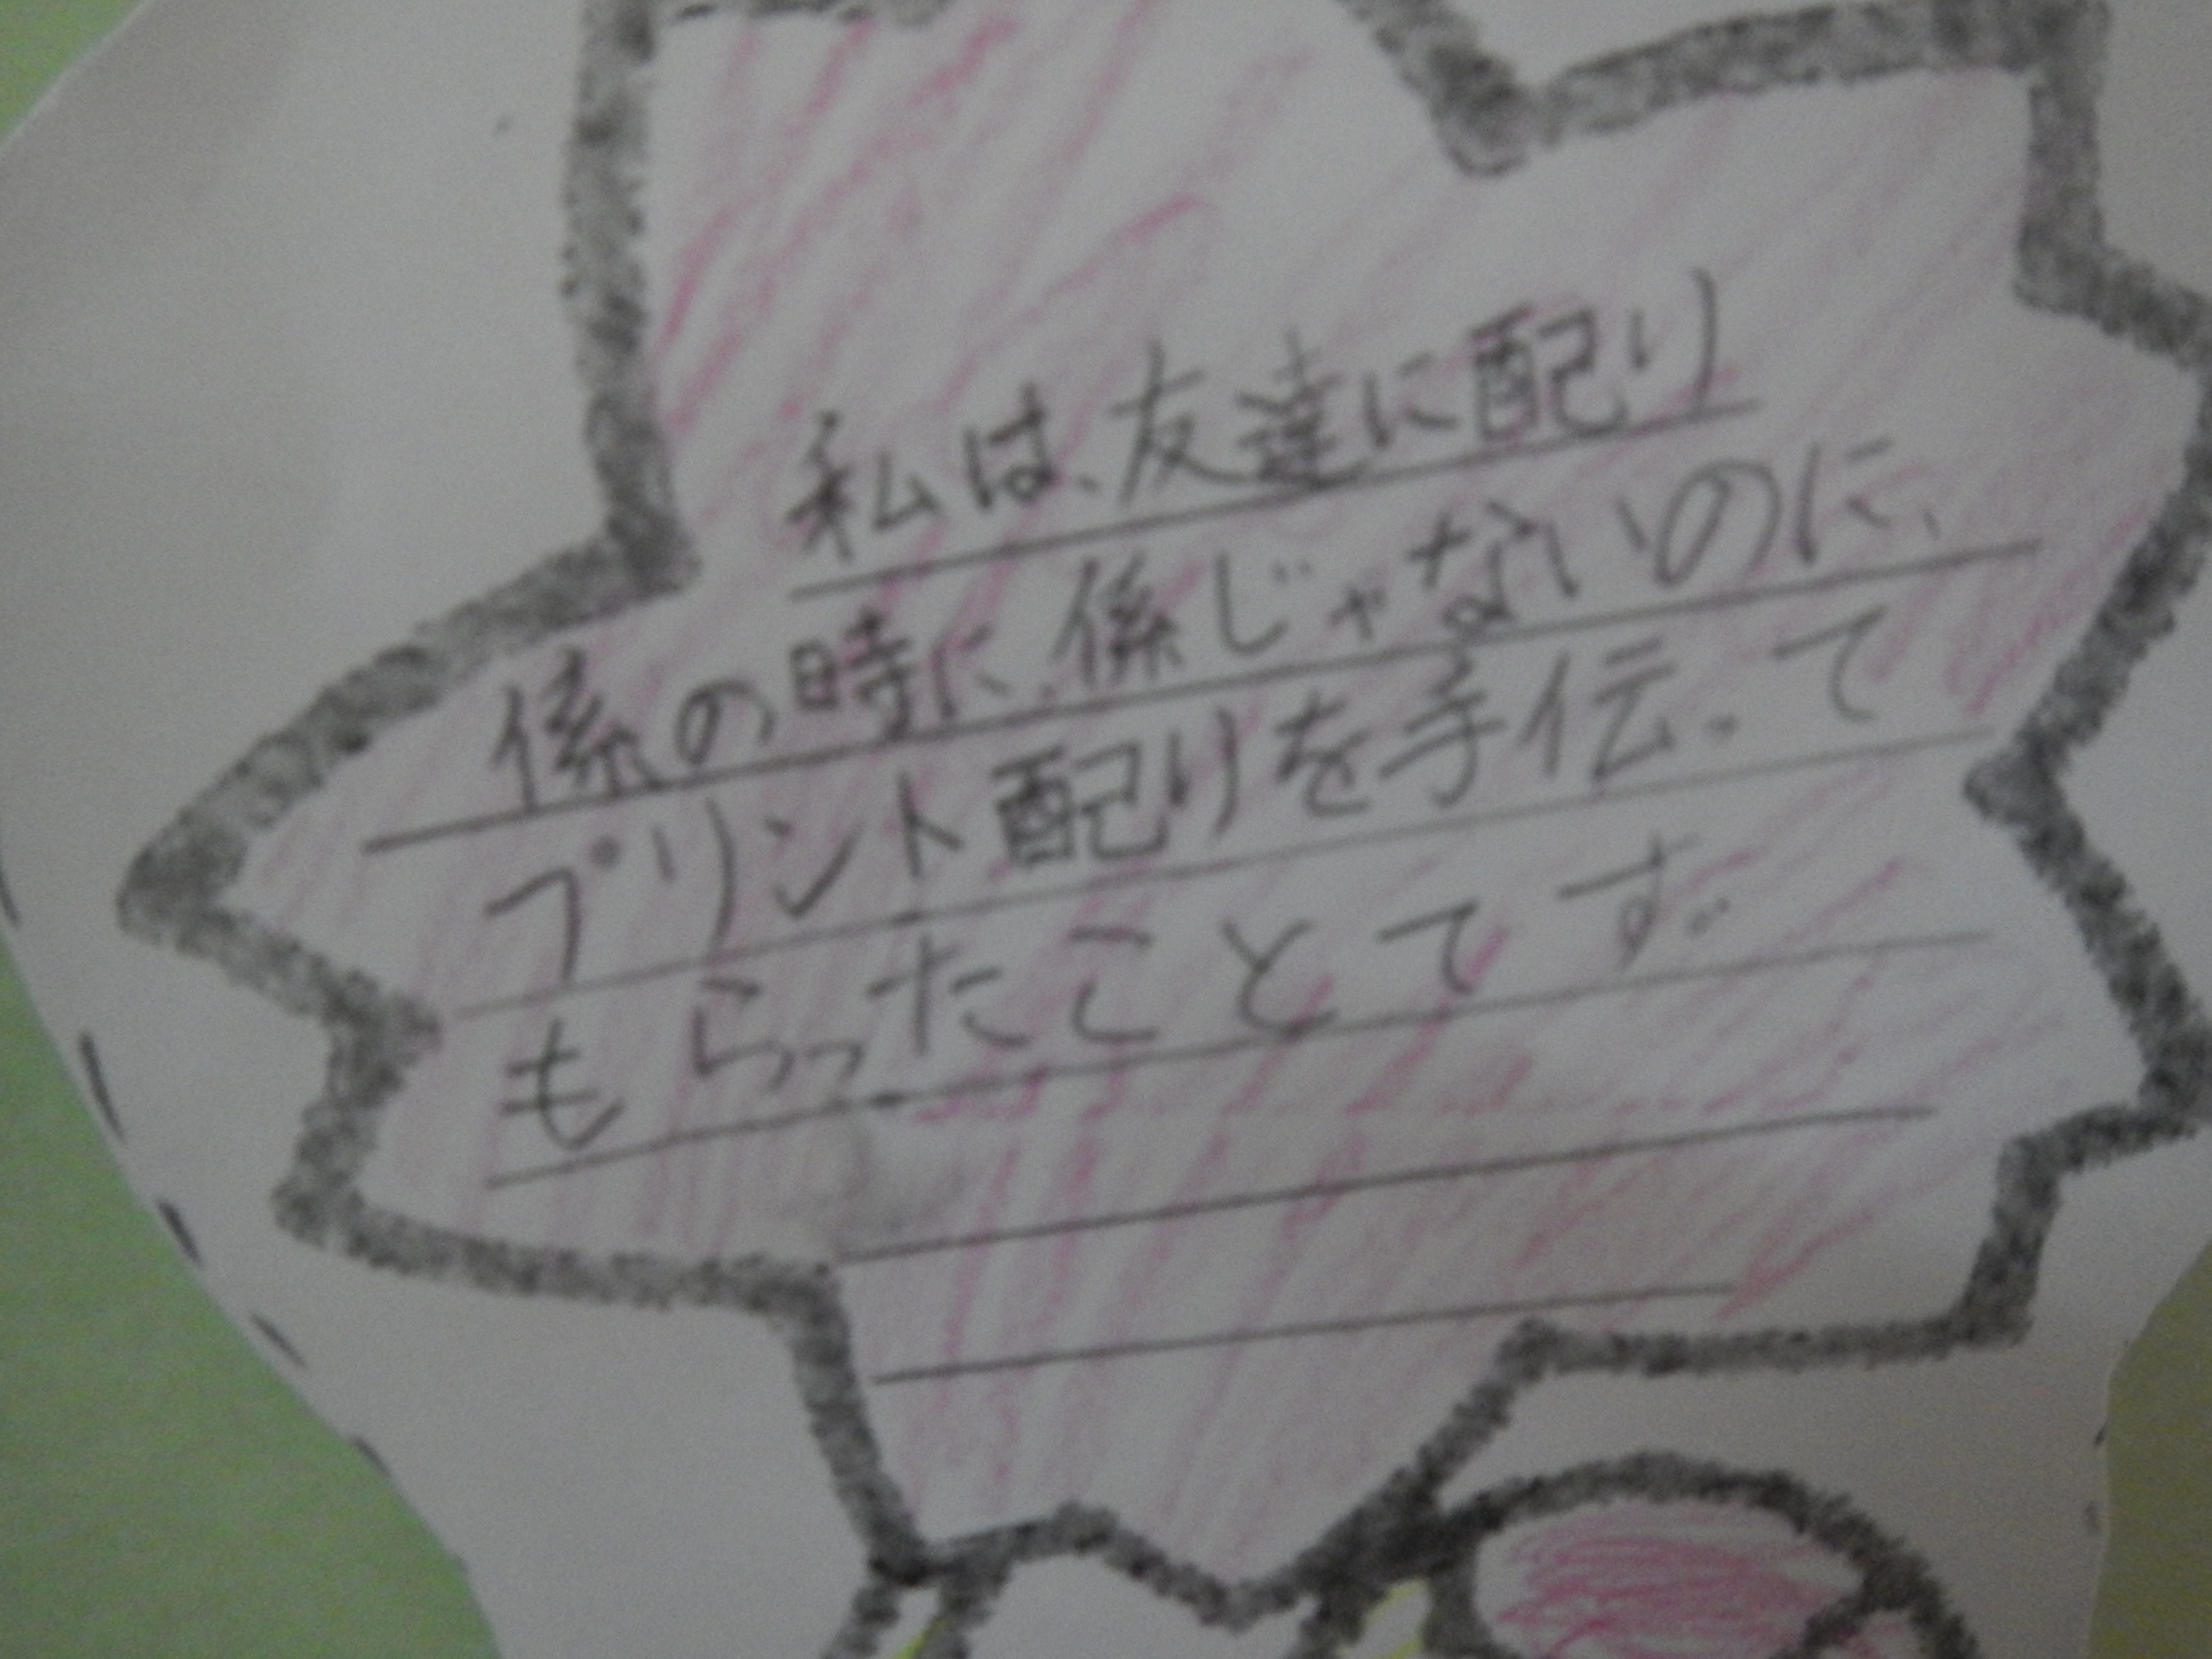 私は、友達に配り
係の時に、係じゃないのに、
プリント配りを手伝って
もらったことてす。